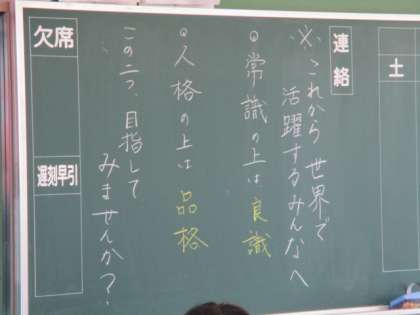 土
連絡
※これから世界で
活躍するみんなへ
◦常識の上は良識
◦人格の上は品格
この二つ、目指して
みませんか?
欠席
遅刻早引